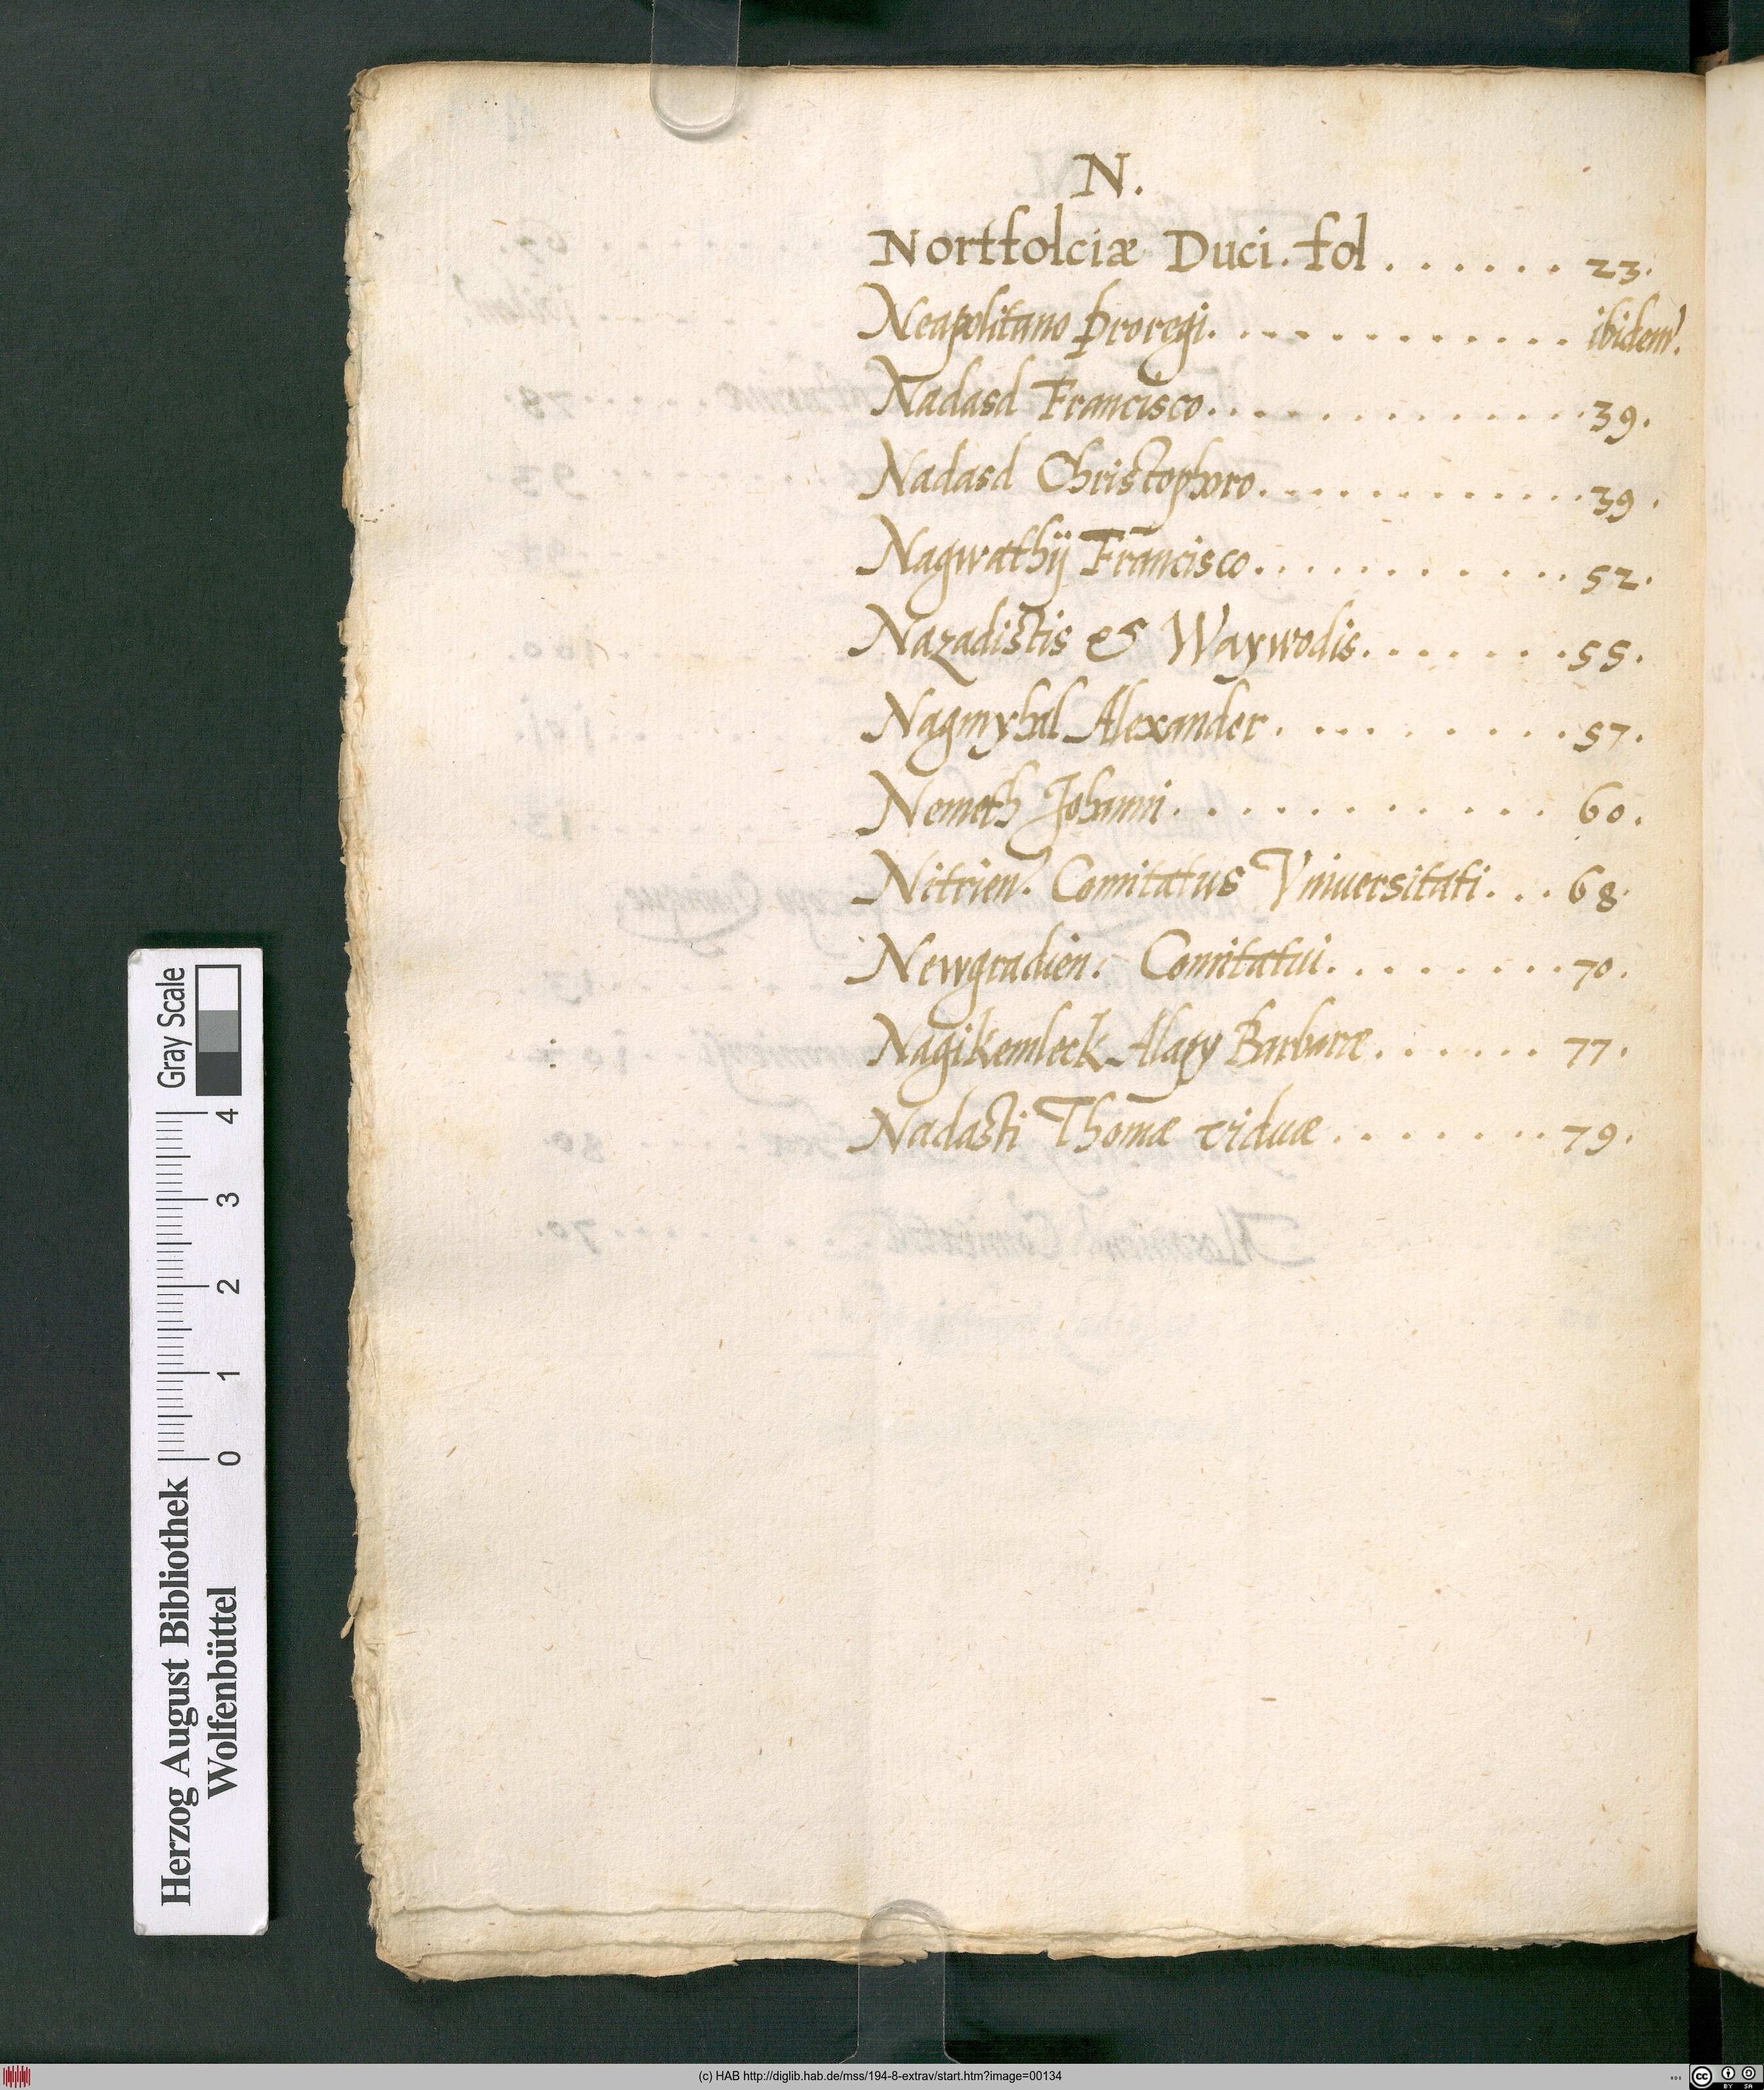 N.
Nortfolciæ Duci. fol . . . . . . . 23.
Neapolitano Proregi. . . . . . . . . . . . . ibidem.
Nadasd Francisco. . . . . . . . . . . . . . . 39.
Nadasd Christophoro. . . . . . . . . . . . . 39.
Nagwathÿ Francisco. . . . . . . . . . . . 52.
Nazadistis & Waywodis. . . . . . . . 55.
Nagmyhal Alexander . . . . . . . . . . 57.
Nemeth Johanni. . . . . . . . . . . . 60.
Nitrien. Comitatus Vniuersitati. . . 68.
Newgradien. Comitatui. . . . . . . . . 70.
Nagikemleck Alapy Barbaræ . . . . . . 77.
Nadasti Thomæ viduæ . . . . . . . . 79.
Herzog August Bibliothek
Wolfenbüttel
0 1 2 3 4
Gray Scale
(c) HAB http://diglib.hab.de/mss/194-8-extrav/start.htm?image=00134
cc BY SA